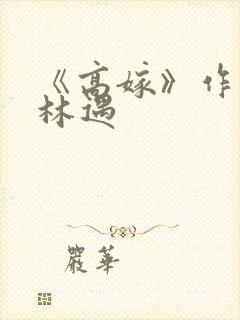 《高嫁》作
林遇
嚴華